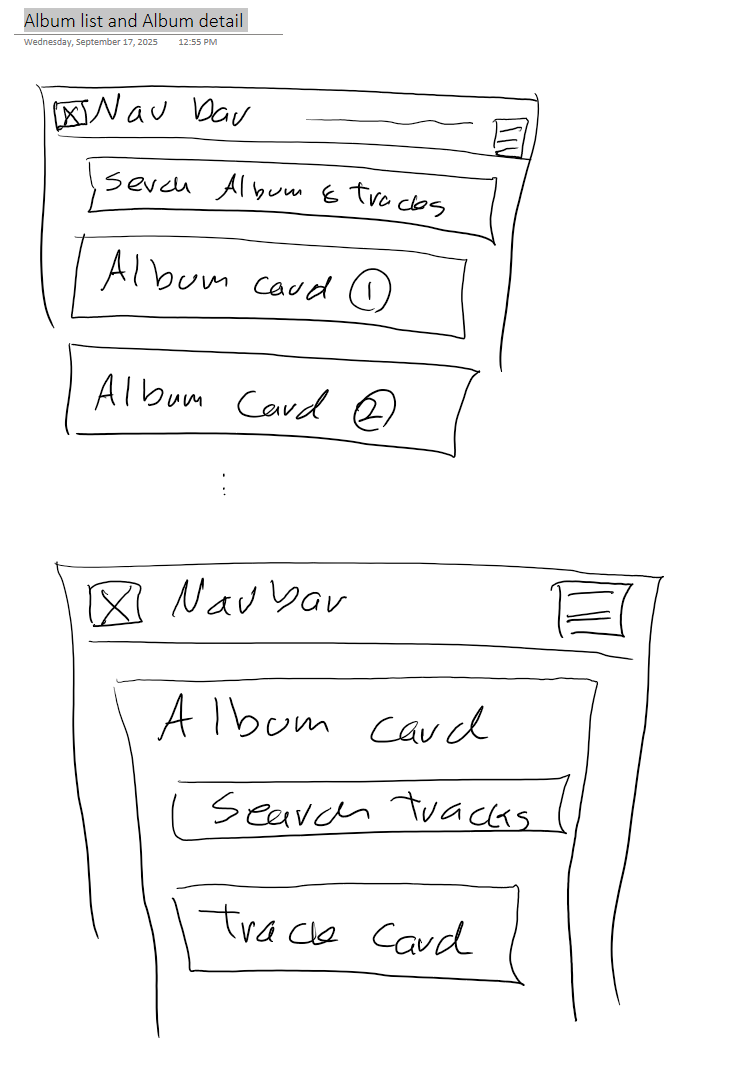 Album list and Album detail
Wednesday, September 17, 2025 12:55 PM
Nav bar
Serch Album & tracks
Album card 1
Album Card 2
Navbar
Album card
Search tracks
track card